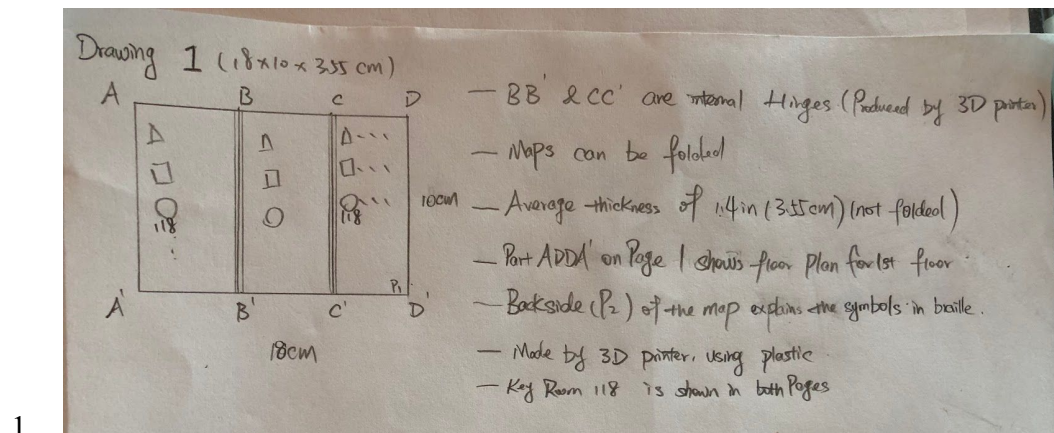 Drawing 1 (18x10x3.55 cm)
A B C D
118
118
10cm
P1
A' B' C' D'
18cm
— BB' & CC' are internal Hinges (Produced by 3D printer)
— Maps can be folded
— Average thickness of 1.4in (3.55cm) (not folded)
— Part ADDA' on Page 1 shows floor Plan for 1st floor
— Backside (P2) of the map explains the symbols in braille.
— Made by 3D printer, using plastic
— Key Room 118 is shown in both Pages
1